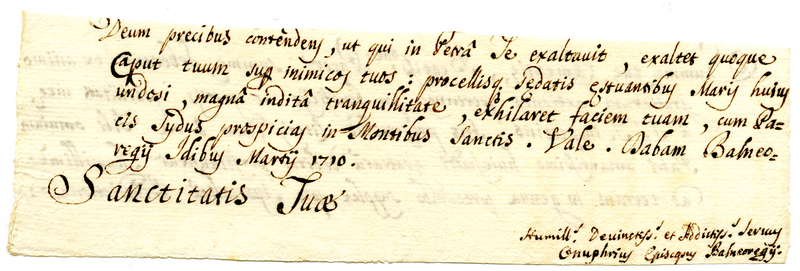 Deum precibus contendens, ut qui in Terrâ Te exaltavit, exaltet quoque
Caput tuum sup inimicos tuos: procellisq. sedatis estuantibus Maris huius
undosi, magnâ inditâ tranquillitate, exhilaret faciem tuam, cum Pa=
cis Sydus prospicias in Montibus Sanctis. Vale. Dabam Balneo=
regij Idibus Martij 1710.
Sanctitatis Tuæ
Humill.s Devinctiss.s et Addictiss.s Servus
Onuphrius Episcopus Balneoregij.